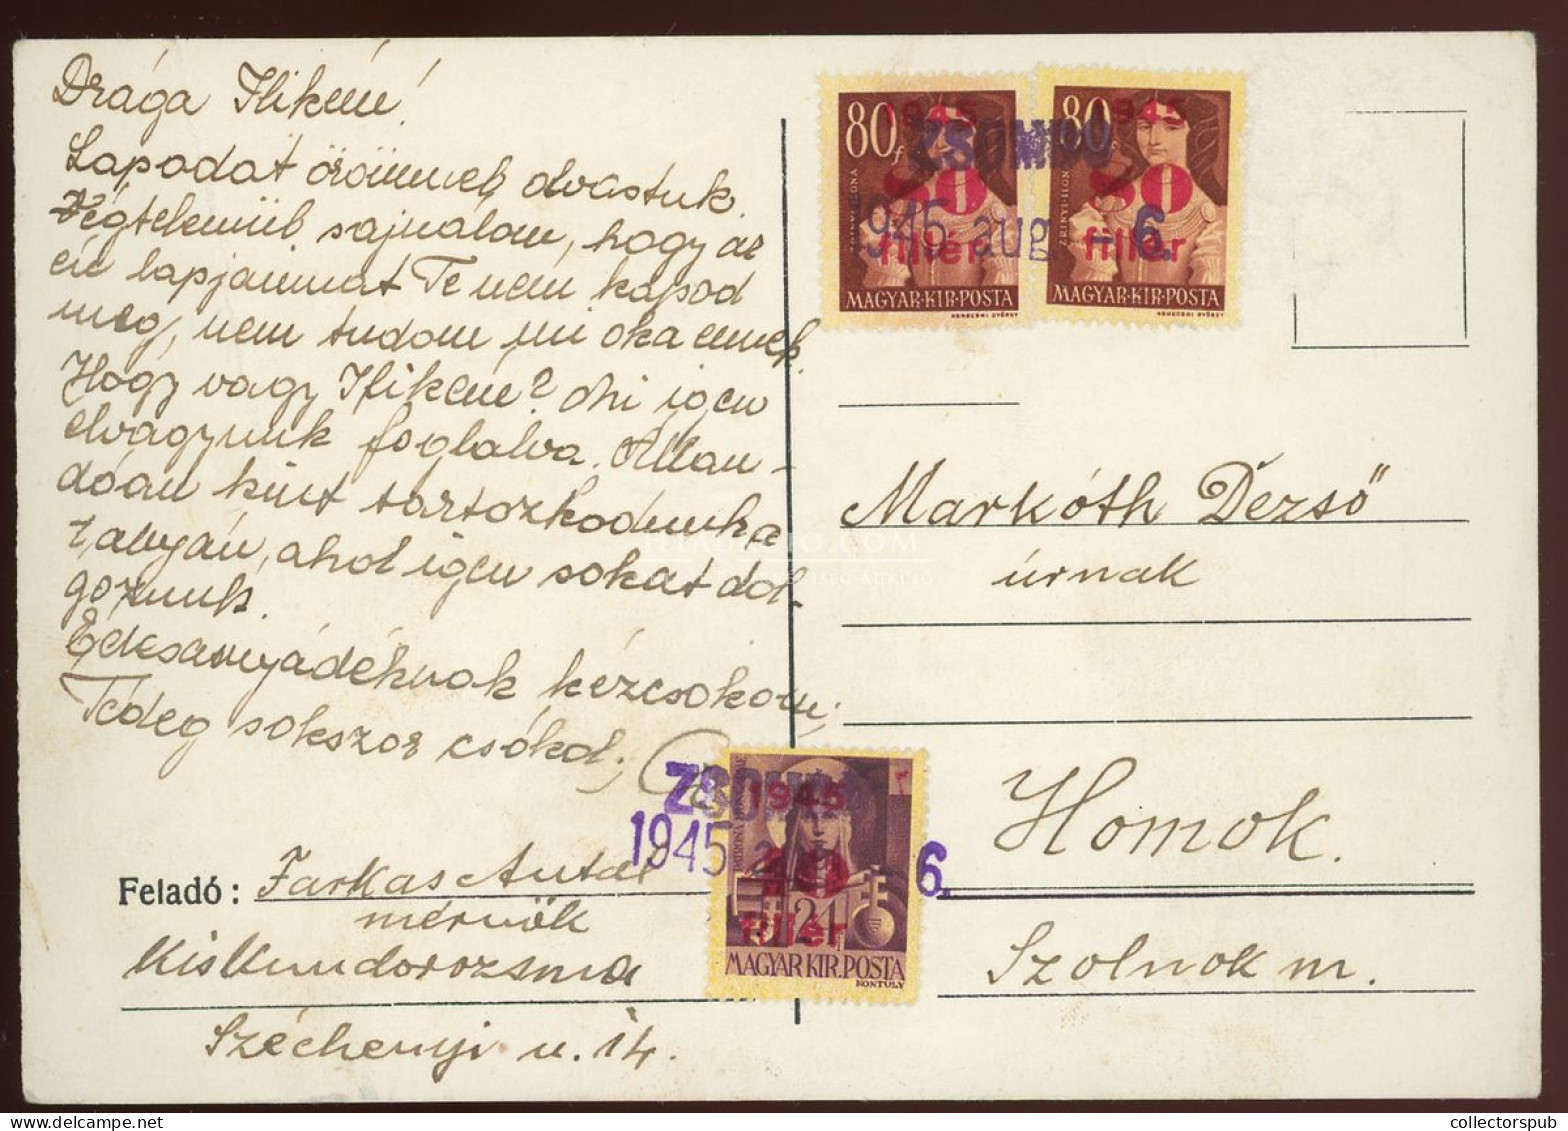 Drága Ilikém!
Lapodat örömmel olvastuk.
Végtelenül sajnálom, hogy az
én lapjaimat Te nem kapod
meg, nem tudom mi oka ennek.
Hogy vagy Ilikém? Mi igen
elvagyunk foglalva. Állan-
dóan kint tartozkodunk a
tanyán, ahol igen sokat dol-
gozunk.
Édesanyádéknak kézcsókom,
Tédeg sokszor csókol:
Feladó: Farkas Antal
mérnök
Kiskundorozsma
Széchenyi u. 14.
80f 1945
80 fillér
MAGYAR·KIR·POSTA
80f 1945
80 fillér
ZRINYI ILONA
MAGYAR·KIR·POSTA
ZSOMBO
1945 aug - 6.
Markóth Dezső
úrnak
Homok.
Szolnok m.
ZSOMBO
1945 6.
1945
40
24
fillér
MAGYAR KIR. POSTA
KONTULY
collectorspub